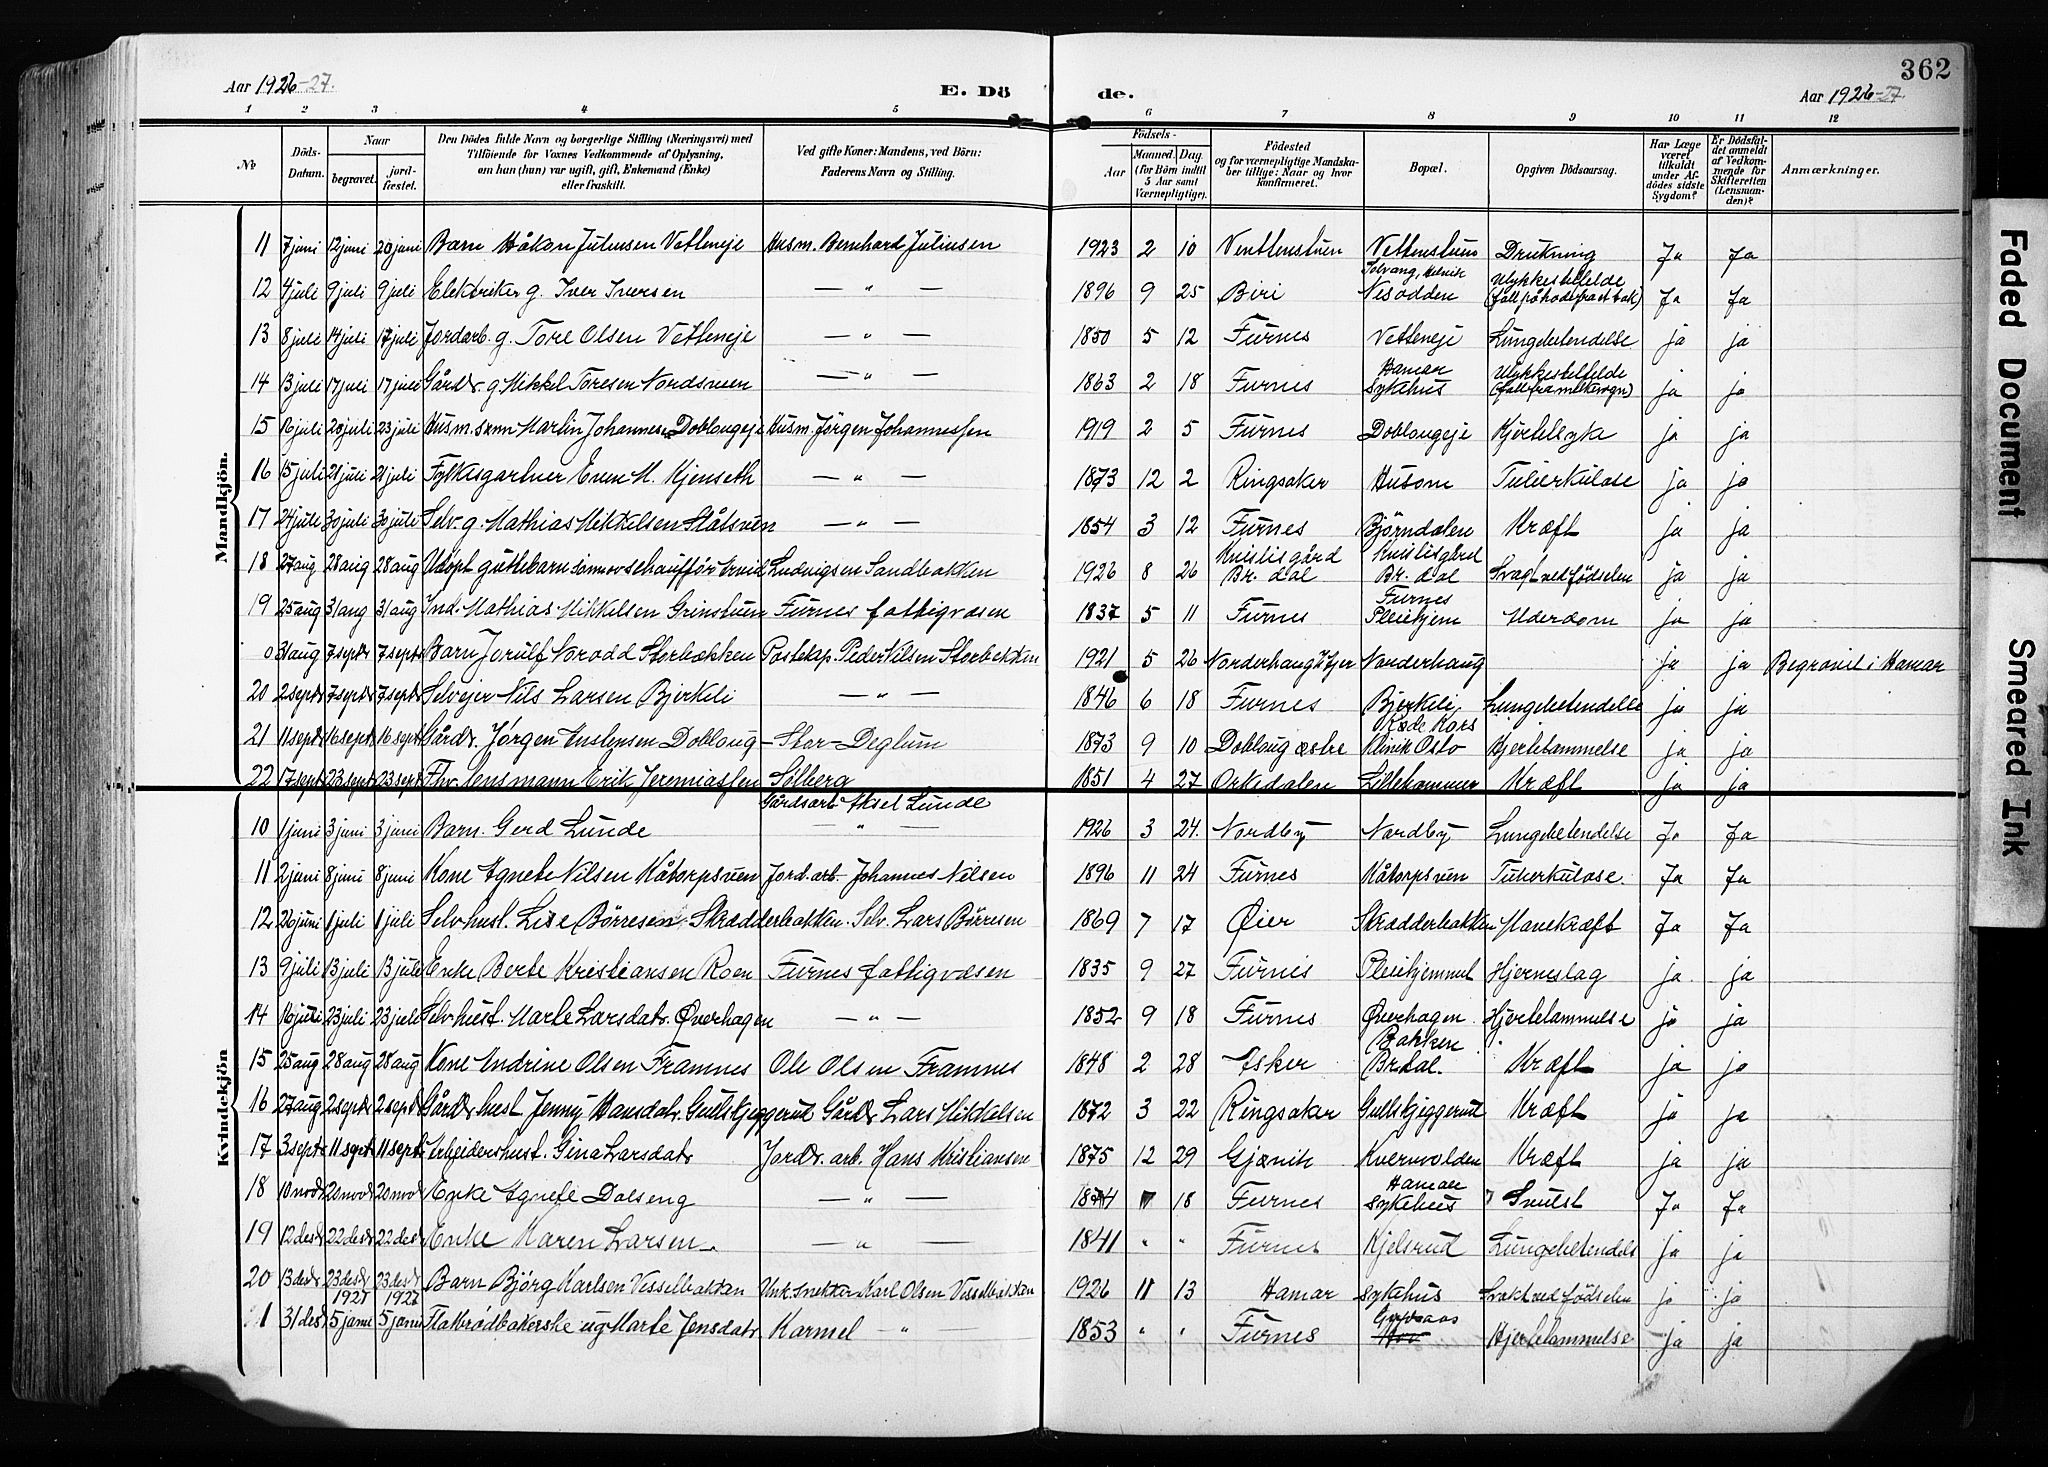 362
Aar 1926-27.
E. Dö de.
Aar 1926-27.
1 2 3 4 5 6 7 8 9 10 11 12
No
Döds-Datum.
Naar
begravet. jordfæstet.
Den Dödes fulde Navn og borgerlige Stilling (Næringsvei) med Tilföiende for Voxnes Vedkommende af Oplysning, om han (hun) var ugift, gift, Enkemand (Enke) eller fraskilt.
Ved gifte Koner: Mandens, ved Börn: Faderens Navn og Stilling.
Födsels-
Aar Maaned. Dag (for Börn indtil 5 Aar samt Værnepligtige).
Födested og for værnepligtige Mandskaber tillige: Naar og hvor konfirmeret.
Bopæl.
Opgiven Dödsaarsag.
Har Læge været tilkaldt under Afdödes sidste Sygdom?
Er Dödsfaldet anmeldt af Vedkommende for Skifteretten (Lensmanden)?
Anmærkninger.
Mandkjön.
11 7 juni 12 juni 20 juni Barn Håkon Juliusen Vetteneje Husm. Bernhard Juliusen 1923 2 10 Vettenstuen Vettenstuen Drukning Ja Ja
12 4 juli 9 juli 9 juli Elektriker g. Iver Iversen — " — 1896 9 25 Biri Solvang, Nesodden Ulykkestilfelde Ja Ja
13 8 juli 14 juli 17 juli Jordarb. g. Tore Olsen Vetteneje — " — 1850 5 12 Furnes Vetteneje Lungebetendelse ja ja
14 13 juli 17 juli 17 juli Gårdr. g. Mikkel Toresen Nordsveen — " — 1863 2 18 Furnes Hamar sykehus Ulykkestilfelde ja ja
15 16 juli 20 juli 23 juli Husm. sønn Martin Johannesen Doblougeje Husm. Jörgen Johannessen 1919 2 5 Furnes Doblougeje Hjertesyke ja ja
16 15 juli 21 juli 21 juli Fylkesgartner Even M. Kjenseth — " — 1873 12 2 Ringsaker Husom Tuberkulose ja ja
17 24 juli 30 juli 30 juli Selv. g. Mathias Mikkelsen Ståtsveen — " — 1854 3 12 Furnes Bjørndalen Kræft ja ja
18 27 aug 28 aug 28 aug Udöpt guttebarn sönn av chaufför Arvid Ludvigsen Sandbakken 1926 8 26 Knislisgård Br. dal Knislisgård Br. dal Svagt ved födselen ja ja
19 25 aug 31 aug 31 aug Ind. Mathias Mikkelsen Grinstuen Furnes fattigvæsen 1837 5 11 Furnes Furnes Pleiehjem Alderdom ja ja
0 31 aug 7 septr 7 septr Barn Jorulf Norodd Storbækken Postekp. Peder Nilsen Storbekken 1921 5 26 Norderhaug Norderhaug ja ja Begravet i Hamar
20 2 septr 7 septr 7 septr Selvejer Nils Larsen Bjerkeli — " — 1846 6 18 Furnes Bjerkeli Lungebetendelse ja ja
21 11 septr 16 septr 16 septr Gårdr. Jørgen Austensen Doblaug - Stor-Deglum 1873 9 10 Doblaug østre Røde Kors Klinik Oslo Hjertelammelse ja ja
22 17 septr 23 septr 23 septr Fhv. lensmann Erik Jeremiassen Sølberg 1851 4 27 Orkedalen Lillehammer Kræft ja ja
Kvindekjön
10 1 juni 3 juni 3 juni Barn. Gerd Lunde Gårdsarb. Aksel Lunde — " — 1926 3 24. Nordby Nordby Lungebetendelse Ja Ja
11 2 juni 8 juni 8 juni Kone Agnete Nilsen Kåtorpsveen Jord.arb. Johannes Nilsen 1896 11 24 Furnes Kåtorpsveen Tuberkulose. Ja Ja
12 26 juni 1 juli 1 juli Selv.hust. Lise Börresen Skredderbakken. Selv. Lars Börresen 1869 7 17 Øier Skredderbakken Mavekræft Ja Ja
13 9 juli 13 juli 13 juli Enke Berte Kristiansen Roen Furnes fattigvæsen 1835 9 27 Furnes Pleiehjemmet Hjerneslag ja ja
14 16 juli 23 juli 23 juli Selv.hust. Marte Larsdatr. Øverhagen — " — 1852 9 18 Furnes Øverhagen Hjertelammelse ja ja
15 25 aug 28 aug 28 aug Kone Andrine Olsen Framnes Ole Olsen Framnes 1848 2 28 Asker Bakken Br.dal. Kræft ja ja
16 27 aug 2 septr 2 septr Gårdr. hust Jenny Hansdatr. Gullskjeggerud Gårdr. Lars Mikkelsen 1872 3 22 Ringsaker Gullskjeggerud Kræft ja ja
17 3 septr 11 septr 11 septr Arbeidershust. Gina Larsdatr Jordr. arb. Hans Kristiansen 1875 12 29 Gjøvik Kvernvolden Kræft ja ja
18 10 novbr 20 novbr 20 novbr Enke Agnete Dalseng — " — 1874 18 Furnes Hamar sykehus Svulst Ja Ja
19 12 desbr 22 desbr 22 desbr Enke Maren Larsen. — " — 1841 " " Furnes Kjelsrud Lungebetendels ja ja
20 13 desbr 23 desbr 23 desbr Barn Bjørg Karlsen Visselbakken Snekker Karl Olsen Visselbakken 1926 11 13 Hamar sykehus Svakt ved födselen ja ja
1 31 desbr 1927 5 janu 1927 5 janu Flatbrødbakerske ug. Marte Jensdatr. Karmel — " 1853 " " Furnes Hov Hjertelammelse ja ja
Faded Document
Smeared Ink